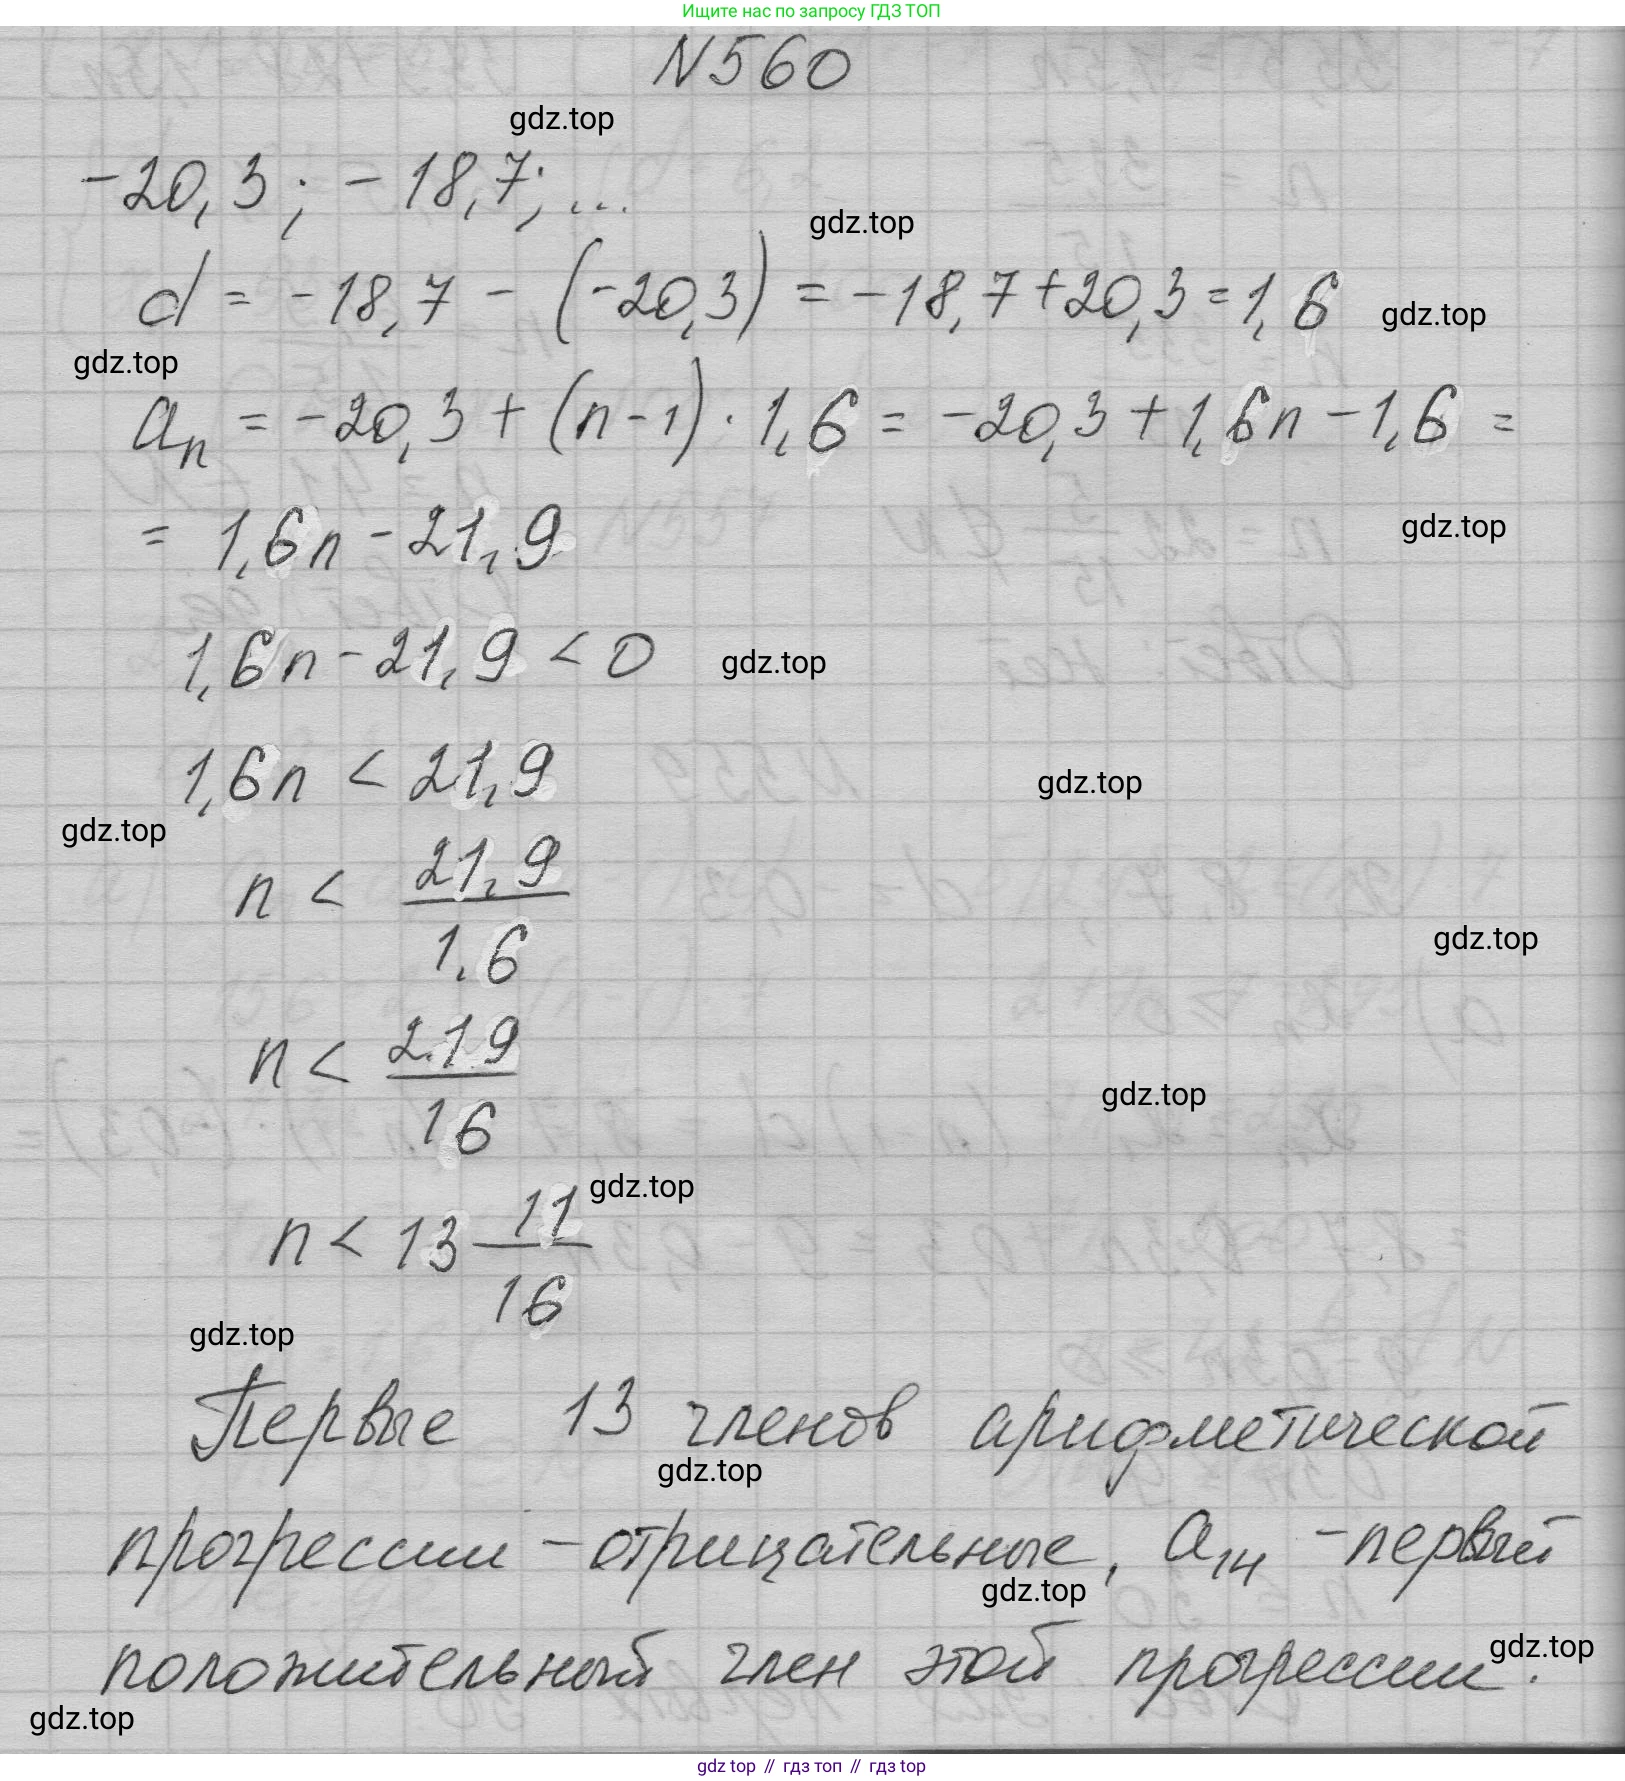 Ищите нас по запросу ГДЗ ТОП
N560
gdz.top
-20,3; -18,7; ...
gdz.top
d = -18,7 - (-20,3) = -18,7+20,3=1,6
gdz.top
gdz.top
aₙ = -20,3 + (n-1) · 1,6 = -20,3 + 1,6n - 1,6 =
= 1,6n - 21,9
gdz.top
1,6n - 21,9 < 0
gdz.top
1,6n < 21,9
gdz.top
gdz.top
n < 21,9/1,6
gdz.top
n < 219/16
gdz.top
gdz.top
n < 13 11/16
gdz.top
Первые 13 членов арифметической
gdz.top
прогрессии - отрицательные, a₁₄ - первый
gdz.top
положительный член этой прогрессии.
gdz.top
gdz.top
gdz top // гдз топ // гдз top